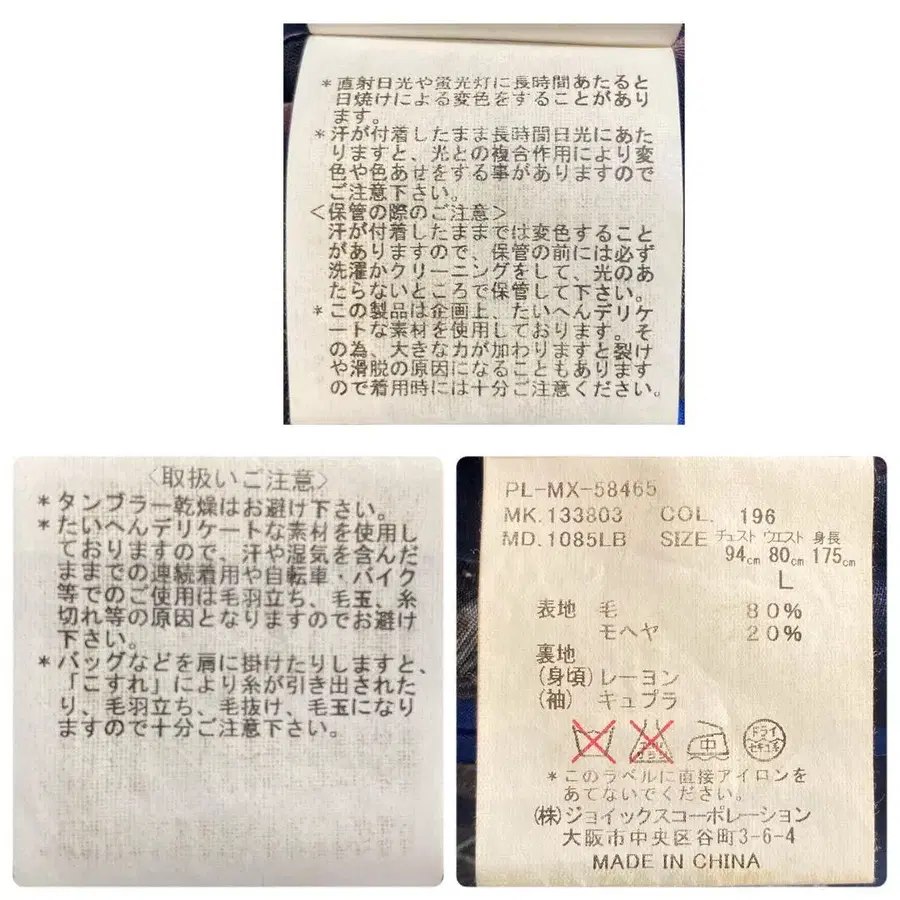 *直射日光や蛍光灯に長時間あたると
日焼けによる変色をすることがあり
ます。
*汗が付着したまま長時間日光にあた
りますと、光との複合作用により変
色や色あせをする事がありますので
ご注意下さい。
<保管の際のご注意>
汗が付着したままでは変色すること
がありますので、保管の前には必ず
洗濯かクリーニングをして、光のあ
たらないところで保管して下さい。
*この製品は企画上、たいへんデリケ
ートな素材を使用しております。そ
の為、大きな力が加わりますと裂け
や滑脱の原因になることもあります
ので着用時には十分ご注意ください。
<取扱いご注意>
*タンブラー乾燥はお避け下さい。
*たいへんデリケートな素材を使用し
ておりますので、汗や湿気を含んだ
ままでの連続着用や自転車・バイク
等でのご使用は毛羽立ち、毛玉、糸
切れ等の原因となりますのでお避け
下さい。
*バッグなどを肩に掛けたりしますと、
「こすれ」により糸が引き出された
り、毛羽立ち、毛抜け、毛玉になり
ますので十分ご注意下さい。
PL-MX-58465
MK.133803 COL. 196
MD.1085LB SIZE チェスト ウエスト 身長
94cm 80cm 175cm
L
表地 毛 80%
モヘヤ 20%
裏地
(身頃) レーヨン
(袖) キュプラ
エンソ サラシ 中 ドライ セキユ系
*このラベルに直接アイロンを
あてないでください。
(株)ジョイックスコーポレーション
大阪市中央区谷町3-6-4
MADE IN CHINA